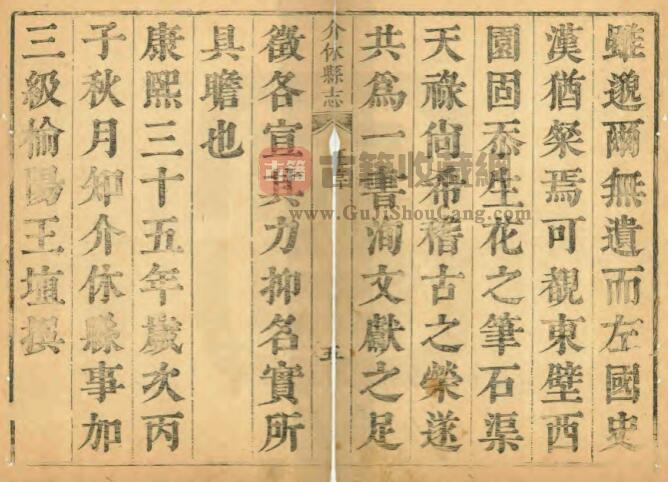 雖邈爾無遺而左國史
漢猶粲焉可覩東壁西
園固忝生花之筆石渠
天祿尙希稽古之榮遂
共爲一書洵文獻之足
介休縣志
五
徵各宣其力抑名實所
具瞻也
康熙三十五年歲次丙
子秋月知介休縣事加
三級榆陽王埴撰
古籍收藏網
www.GuJiShouCang.com